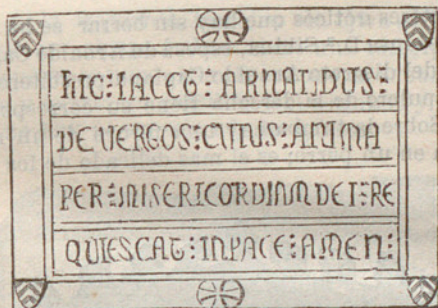 hIC : IACET : ARNALDUS :
DE VERGOS : CUIUS : ANIMA
PER : MISERICORDIAM DEI : RE
QUIESCAT : IN PACE : AMEN :